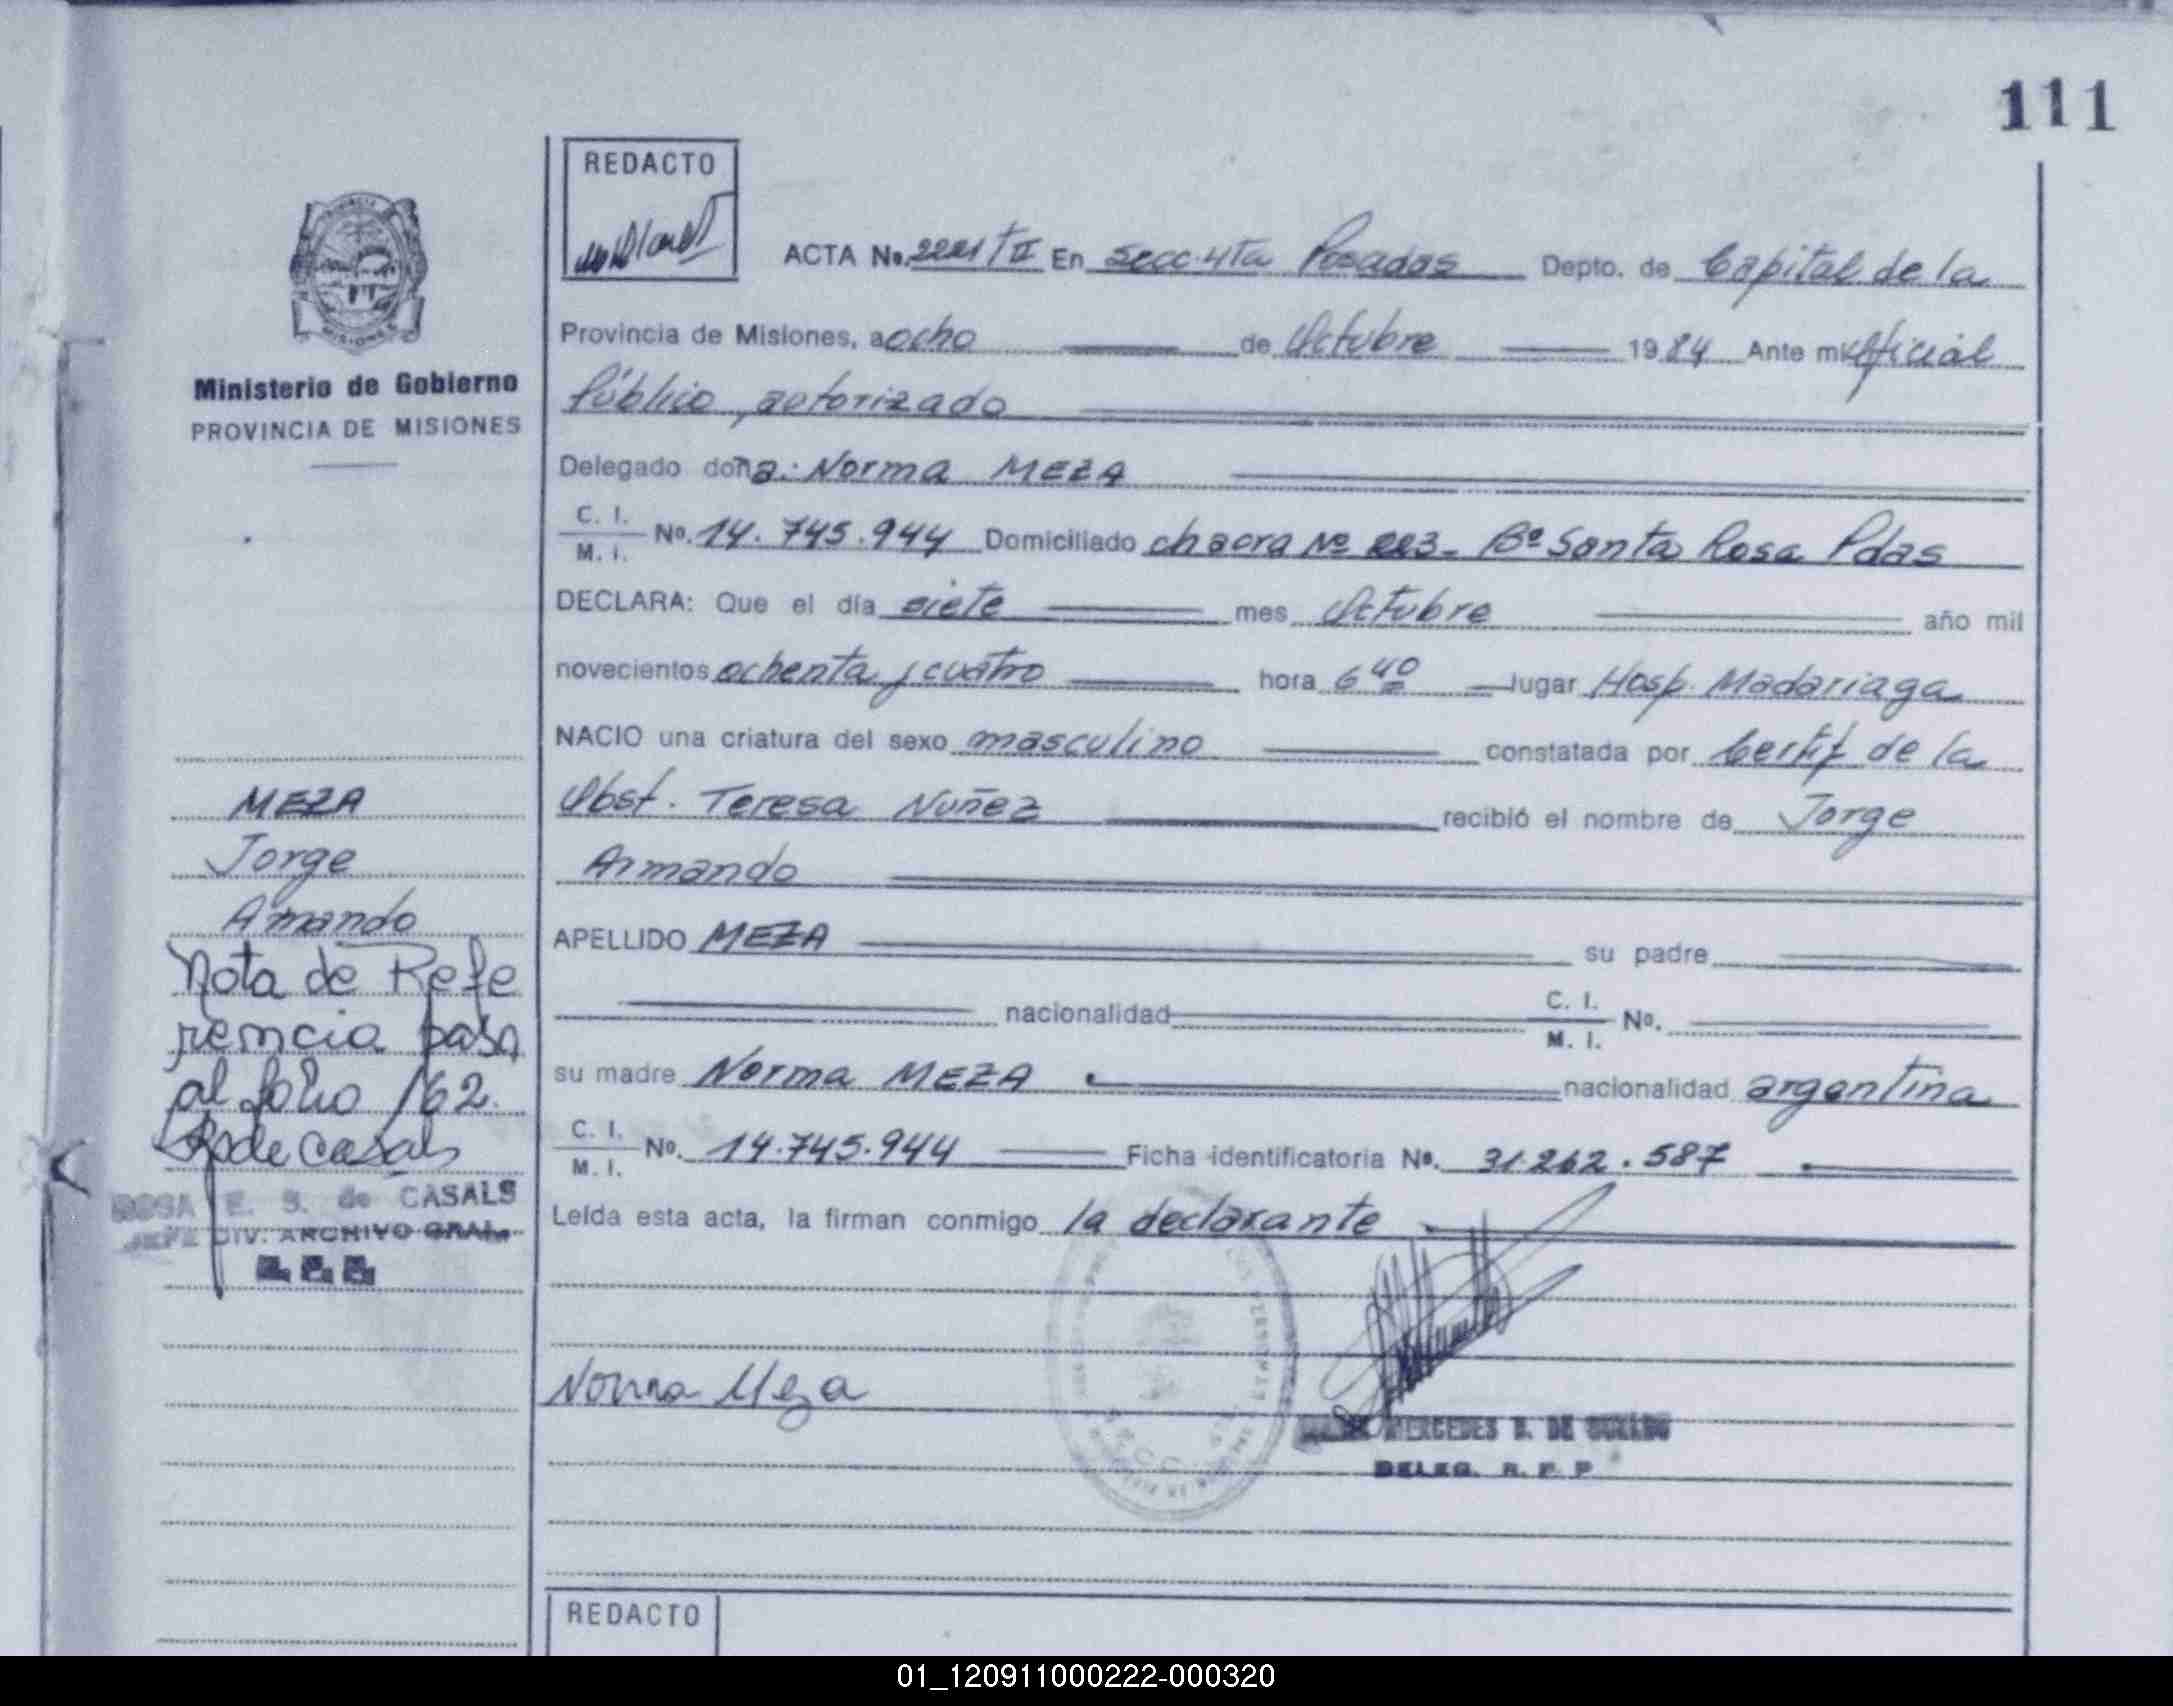 111
REDACTO
ACTA No. 2221/TII En Secc. 4ta Posadas Depto. de Capital de la
Provincia de Misiones, a ocho de Octubre 1984 Ante mi Oficial
Público, autorizado
Delegado doña: Norma MEZA
C. I.
M. I. No. 14.745.944 Domiciliado chacra Nº 223- Bº Santa Rosa Pdas
DECLARA: Que el día siete mes Octubre año mil
novecientos ochenta y cuatro hora 6 40 lugar Hosp. Madariaga
NACIO una criatura del sexo masculino constatada por Certif de la
Obst. Teresa Nuñez recibió el nombre de Jorge
Armando
APELLIDO MEZA su padre
nacionalidad C. I.
M. I. No.
su madre Norma MEZA nacionalidad argentina
C. I.
M. I. No. 14.745.944 Ficha identificatoria No. 31.262.587
Leída esta acta, la firman conmigo la declarante
Norma Meza
MERCEDES
DELEG. R. P. P
REDACTO
PROVINCIA
MISIONES
Ministerio de Gobierno
PROVINCIA DE MISIONES
MEZA
Jorge
Armando
Nota de Refe
rencia pasa
al folio 162.
R de Casals
ROSA E. S. de CASALS
JEFE DIV. ARCHIVO GRAL.
R. P. P.
01_120911000222-000320